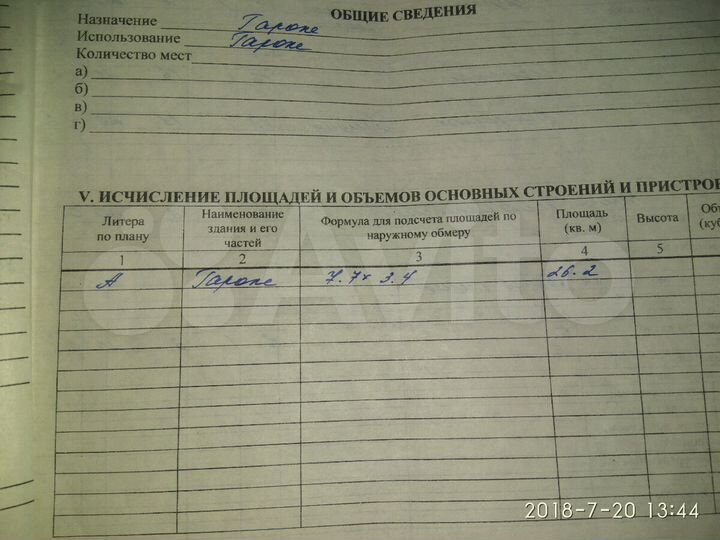 ОБЩИЕ СВЕДЕНИЯ
Назначение Гараж
Использование Гараж
Количество мест
а)
б)
в)
г)
V. ИСЧИСЛЕНИЕ ПЛОЩАДЕЙ И ОБЪЕМОВ ОСНОВНЫХ СТРОЕНИЙ И ПРИСТРО
Литера по плану
Наименование здания и его частей
Формула для подсчета площадей по наружному обмеру
Площадь (кв. м)
Высота
Объ (куб
1 2 3 4 5
А Гараж 7.7 х 3.4 26.2
Avito
2018-7-20 13:44